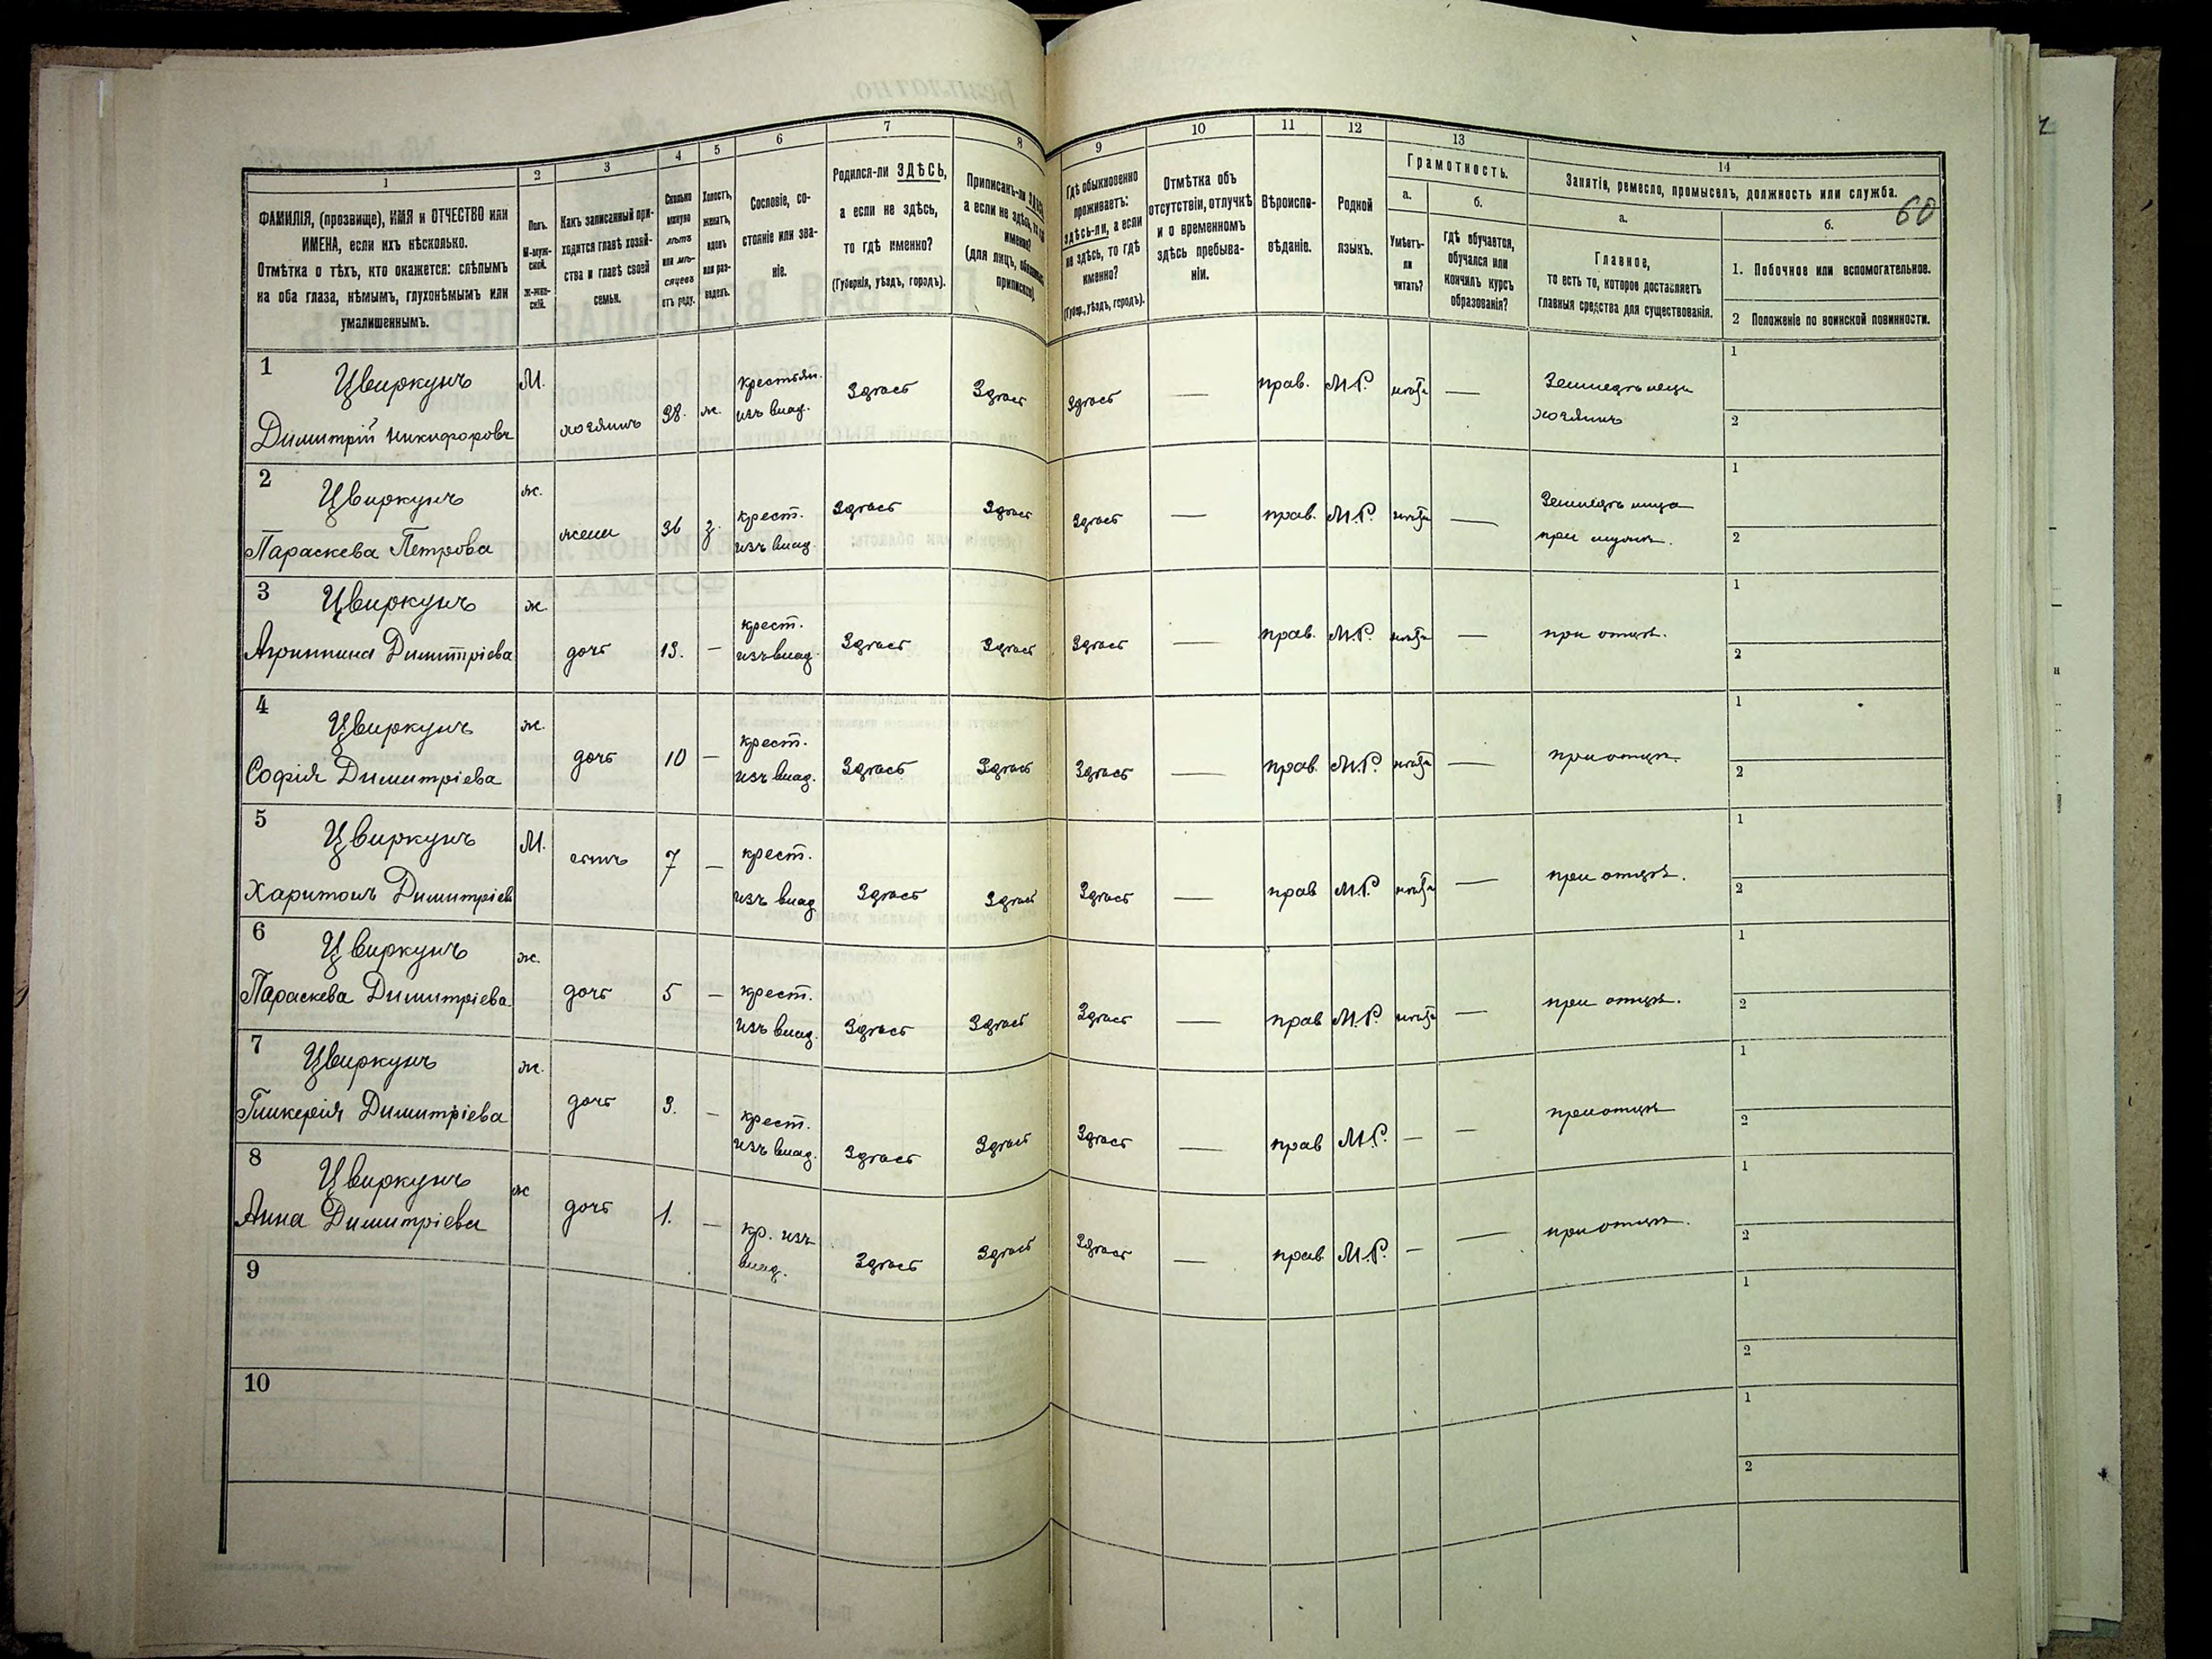 60
1
2
3
4
5
6
7
8
9
10
11
12
13
14
ФАМИЛІЯ, (прозвище), ИМЯ и ОТЧЕСТВО или
ИМЕНА, если ихъ нѣсколько.
Отмѣтка о тѣхъ, кто окажется: слѣпымъ
на оба глаза, нѣмымъ, глухонѣмымъ или
умалишеннымъ.
Полъ.
М-муж-
ской.
Ж-жен-
скій.
Какъ записанный при-
ходится главѣ хозяй-
ства и главѣ своей
семьи.
Сколько
минуло
лѣтъ
или мѣ-
сяцевъ
отъ роду.
Холостъ,
женатъ,
вдовъ
или раз-
веденъ.
Сословіе, со-
стояніе или зва-
ніе.
Родился-ли ЗДѢСЬ,
а если не здѣсь,
то гдѣ именно?
(Губернія, уѣздъ, городъ).
Приписанъ-ли
а если не здѣсь, то гдѣ
именно?
(для лицъ,
Гдѣ обыкновенно
проживаетъ:
здѣсь-ли, а если
не здѣсь, то гдѣ
именно?
(Губер., уѣздъ, городъ).
Отмѣтка объ
отсутствіи, отлучкѣ
и о временномъ
здѣсь пребыва-
ніи.
Вѣроиспо-
вѣданіе.
Родной
языкъ.
Грамотность.
а.
Умѣетъ-
ли
читать?
б.
Гдѣ обучается,
обучался или
кончилъ курсъ
образованія?
Занятія, ремесло, промыселъ, должность или служба.
а.
Главное,
то есть то, которое доставляетъ
главныя средства для существованія.
б.
1. Побочное или вспомогательное.
2 Положеніе по воинской повинности.
1 Цвиркунъ
Димитрій Никифоровъ М. хозяинъ 38. ж. крестьян. изъ влад. Здѣсь Здѣсь Здѣсь — прав. М.Р. нѣтъ — Земледѣлецъ хозяинъ 1 2
2 Цвиркунъ
Параскева Петрова ж. жена 36 з. крест. изъ влад. Здѣсь Здѣсь Здѣсь — прав. М.Р. нѣтъ — при мужѣ. 1 2
3 Цвиркунъ
Агрипина Димитріева ж. дочь 13. — крест. изъ влад. Здѣсь Здѣсь Здѣсь — прав. М.Р. нѣтъ — при отцѣ. 1 2
4 Цвиркунъ
Софія Димитріева ж. дочь 10 — крест. изъ влад. Здѣсь Здѣсь Здѣсь — прав. М.Р. нѣтъ — при отцѣ. 1 2
5 Цвиркунъ
Харитонъ Димитріев М. сынъ 7 — крест. изъ влад Здѣсь Здѣсь Здѣсь — прав М.Р. нѣтъ — при отцѣ. 1 2
6 Цвиркунъ
Параскева Димитріева ж. дочь 5 — крест. изъ влад. Здѣсь Здѣсь Здѣсь — прав М.Р. нѣтъ — при отцѣ. 1 2
7 Цвиркунъ
Гликерія Димитріева ж. дочь 3. — крест. изъ влад. Здѣсь Здѣсь Здѣсь — прав М.Р. — — при отцѣ 1 2
8 Цвиркунъ
Анна Димитріева ж дочь 1. — кр. изъ влад. Здѣсь Здѣсь Здѣсь — прав М.Р. — — при отцѣ. 1 2
9 1 2
10 1 2